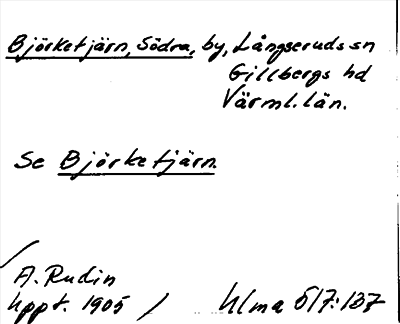 Björketjärn, Södra, by, Långseruds sn
Gillbergs hd
Värml. län.
Se Björketjärn.
A. Rudin
Uppt. 1905 / Ulma 517:137